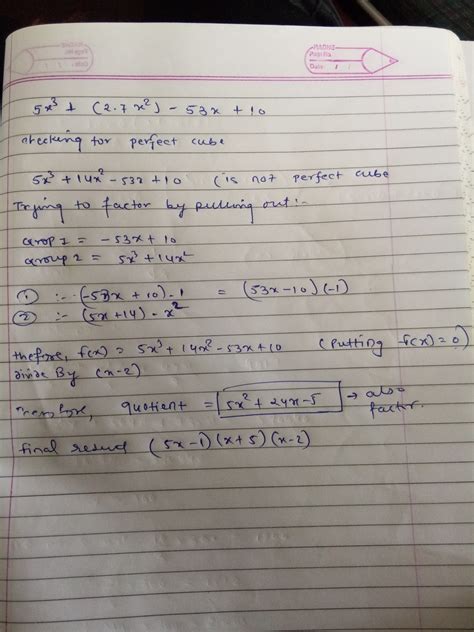 MADINA
Page No.
Date: / /
5x³ + (2.7x²) - 53x + 10
checking for perfect cube
5x³ + 14x² - 53x + 10 (is not perfect cube
Trying to factor by pulling out:-
group 1 = -53x + 10
group 2 = 5x³ + 14x²
① :- (-53x + 10) · 1 = (53x-10) (-1)
② :- (5x+14) · x²
therefore, f(x) = 5x³ + 14x² - 53x + 10 (Putting f(x) = 0)
divide By (x-2)
Therefore, quotient = 5x² + 24x - 5 → also factor.
final result (5x-1) (x+5) (x-2)